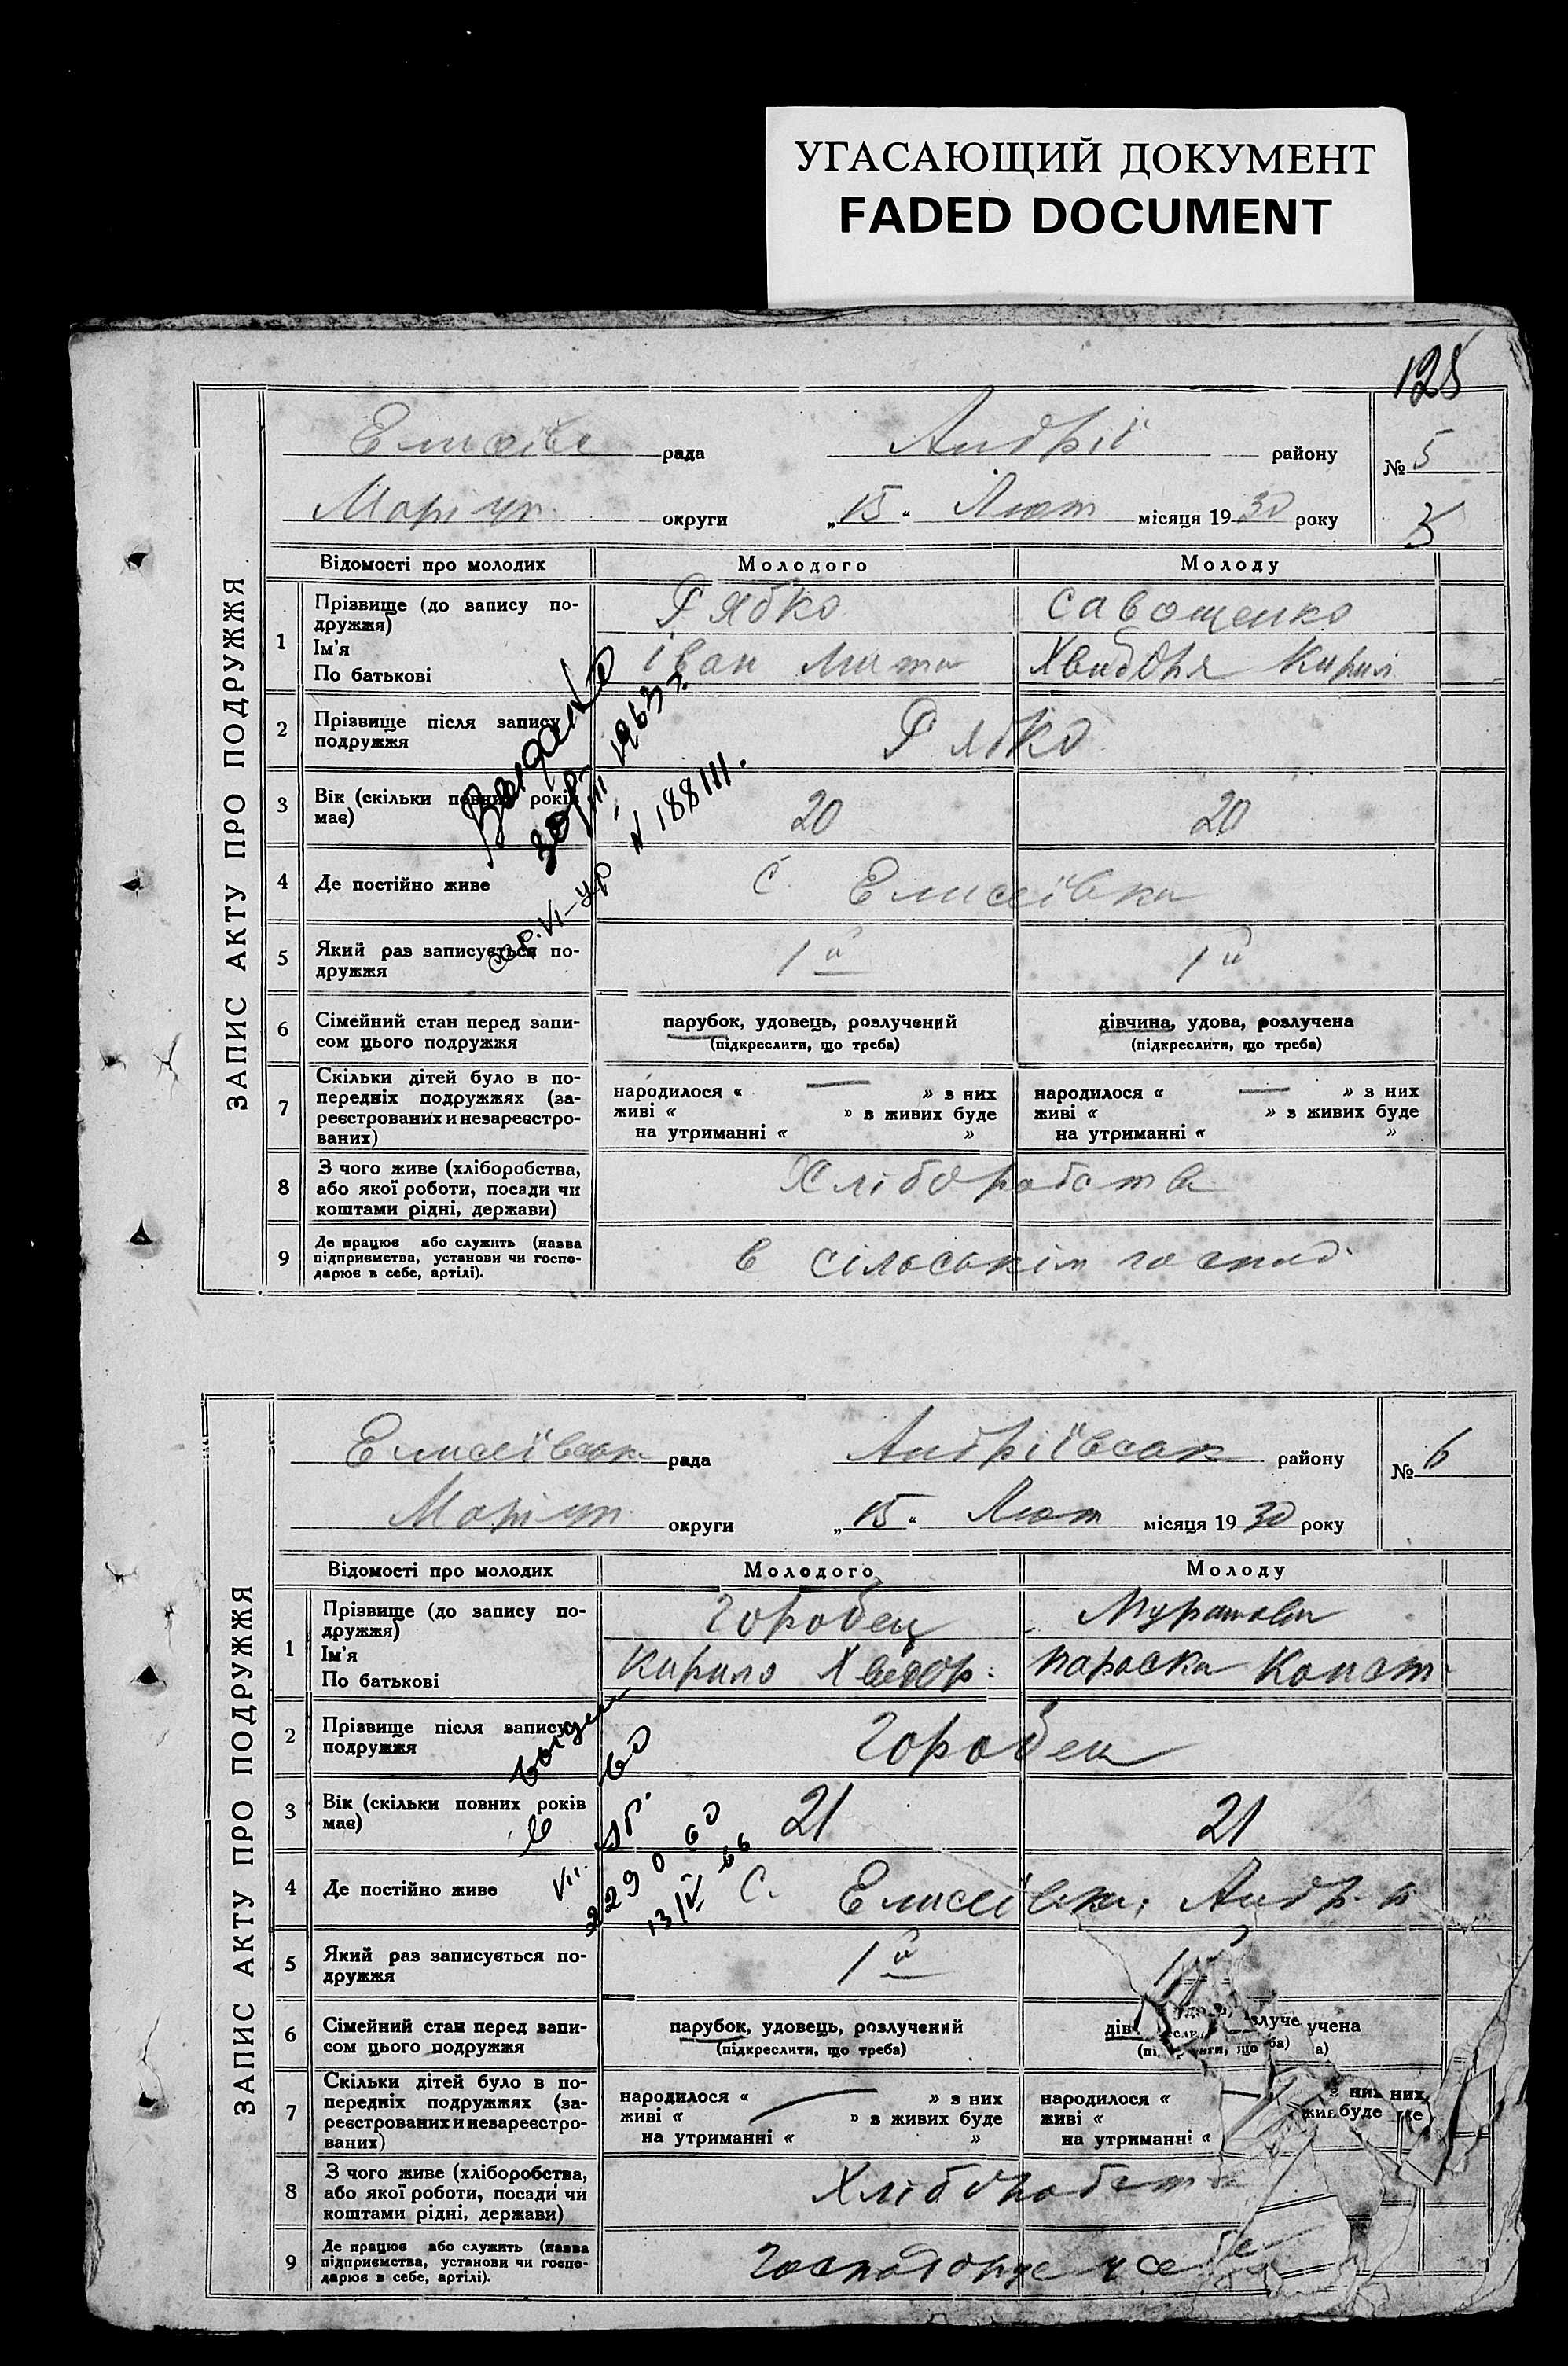 УГАСАЮЩИЙ ДОКУМЕНТ
FADED DOCUMENT
125
ЗАПИС АКТУ ПРО ПОДРУЖЖЯ
Елисеївс рада Андрії району № 5
Маріуп. округи „15“ Лют місяця 1930 року 5
Відомості про молодих Молодого Молоду
1 Прізвище (до запису по-
дружжя) Рябко Савощенко
Ім'я
По батькові Іван Мит Хвидоря Кирил
2 Прізвище після запису
подружжя Рябко
3 Вік (скільки повних років
має) 20 20
4 Де постійно живе С. Елисеївка
5 Який раз записується по-
дружжя 1й 1й
6 Сімейний стан перед запи-
сом цього подружжя
парубок, удовець, розлучений дівчина, удова, розлучена
(підкреслити, що треба) (підкреслити, що треба)
7 Скільки дітей було в по-
передніх подружжях (за-
реєстрованих и незареєстро-
ваних)
народилося « — » з них народилося « — » з них
живі « » з живих буде живі « » з живих буде
на утриманні « » на утриманні « »
8 З чого живе (хліборобства,
або якої роботи, посади чи
коштами рідні, держави) Хліборобств
9 Де працює або служить (назва
підприємства, установи чи госпо-
дарює в себе, артілі). в сільськім господ.
30/III 1963 г.
сер. VI-УР N 188111.
ЗАПИС АКТУ ПРО ПОДРУЖЖЯ
Елисеївськ рада Андріївськ району № 6
Маріуп. округи „15“ Лют місяця 1930 року
Відомості про молодих Молодого Молоду
1 Прізвище (до запису по-
дружжя) Горобец
Ім'я
По батькові Кирило Хведор. Параска Конст.
2 Прізвище після запису
подружжя Горобец
3 Вік (скільки повних років
має) 21 21
4 Де постійно живе С. Елисеївка, Андр. р
5 Який раз записується по-
дружжя 1й
6 Сімейний стан перед запи-
сом цього подружжя
парубок, удовець, розлучений
(підкреслити, що треба)
7 Скільки дітей було в по-
передніх подружжях (за-
реєстрованих и незареєстро-
ваних)
народилося « » з них народилося «
живі « » з живих буде живі « буде
на утриманні « » на утриманні «
8 З чого живе (хліборобства,
або якої роботи, посади чи
коштами рідні, держави) Хліборобств
9 Де працює або служить (назва
підприємства, установи чи госпо-
дарює в себе, артілі). Господорує у себе
13/IV 66